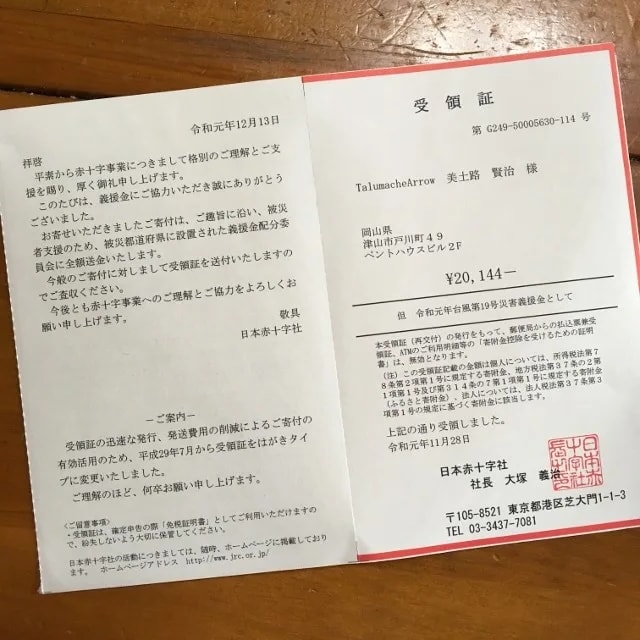 令和元年12月13日
拝啓
平素から赤十字事業につきまして格別のご理解とご支
援を賜り、厚く御礼申し上げます。
このたびは、義援金にご協力いただき誠にありがとう
ございました。
お寄せいただきましたご寄付は、ご趣旨に沿い、被災
者支援のため、被災都道府県に設置された義援金配分委
員会に全額送金いたします。
今般のご寄付に対しまして受領証を送付いたしますの
でご査収ください。
今後とも赤十字事業へのご理解とご協力をよろしくお
願い申し上げます。
敬具
日本赤十字社
－ご案内－
受領証の迅速な発行、発送費用の削減によるご寄付の
有効活用のため、平成29年7月から受領証をはがきタイ
プに変更いたしました。
ご理解のほど、何卒お願い申し上げます。
〈ご留意事項〉
・受領証は、確定申告の際「免税証明書」としてご利用いただけますの
で、紛失しないよう大切に保管してください。
日本赤十字社の活動につきましては、随時、ホームページに掲載しており
ます。 ホームページアドレス http://www.jrc.or.jp/
受領証
第 G249-50005630-114 号
TalumacheArrow 美土路 賢治 様
岡山県
津山市戸川町４９
ペントハウスビル２F
¥20,144－
但 令和元年台風第19号災害義援金として
本受領証（再交付）の発行をもって、郵便局からの払込票兼受
領証、ATMのご利用明細等の「寄附金控除を受けるための証明
書」は、無効となります。
（注）この受領証記載の金額は個人については、所得税法第７
８条第２項第１号に規定する寄附金、地方税法第３７条の２第
１項第１号及び第３１４条の７第１項第１号に規定する寄附金
（ふるさと寄附金）、法人については、法人税法第３７条第３
項第１号の規定に基づく寄附金に該当します。
上記の通り受領しました。
令和元年11月28日
日本赤十字社
社長 大塚 義治
〒105-8521 東京都港区芝大門1-1-3
TEL 03-3437-7081